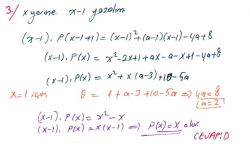 3/ x yerine x-1 yazalım
(x-1). P(x-1+1) = (x-1)²+(a-1)(x-1)-4a+8
(x-1). P(x) = x²-2x+1+ax-a-x+1-4a+8
(x-1). P(x) = x²+x(a-3)+10-5a
x=1 için 0 = 1+a-3+10-5a ⇒ 4a=8
a=2
(x-1). P(x) = x²-x
(x-1). P(x) = x(x-1) ⇒ P(x)=x olur.
CEVAP D